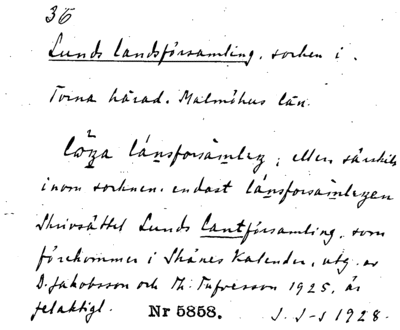 36
Lunds landsförsamling, socken i
Torna härad. Malmöhus län.
lánsforsamleg, eller särskilt
inom socknen. endast lánsforsamlegen
Skrivsättet Lunds Lantförsamling, som
förekommer i Skånes Kalender, utg. av
D. Jakobsson och Th. Tufvesson 1925, är
felaktigt. Nr 5858. J. S-s 1928.